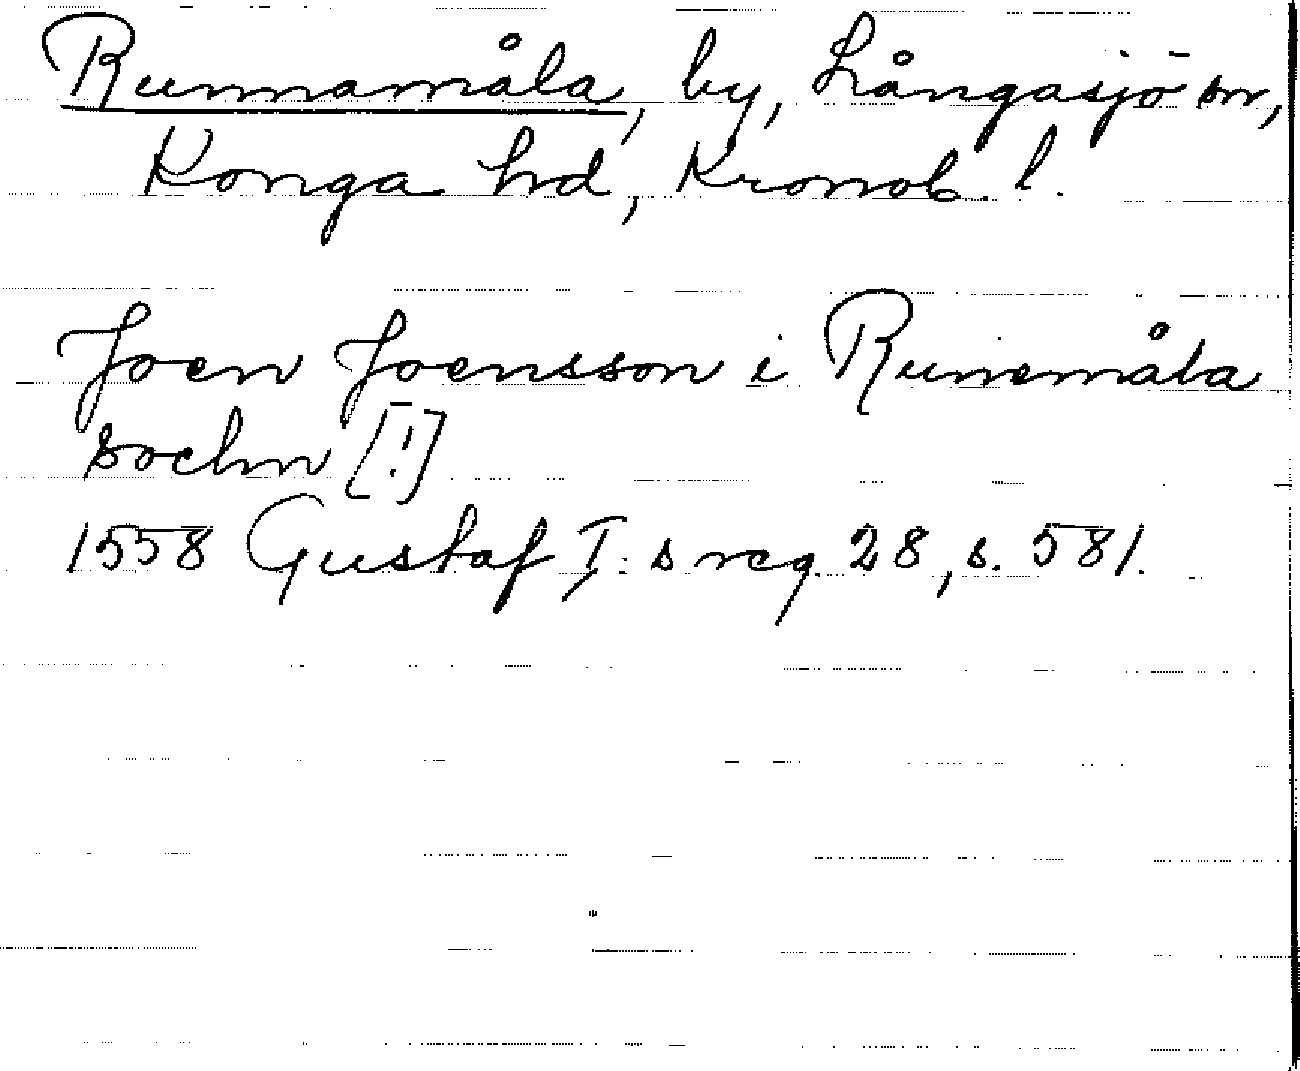 Runnamåla, by, Långasjö sn,
Konga hd, Kronob. l.
Joen Joensson i Runemåla
sochn [!]
1558 Gustaf I:s reg. 28, s. 581.